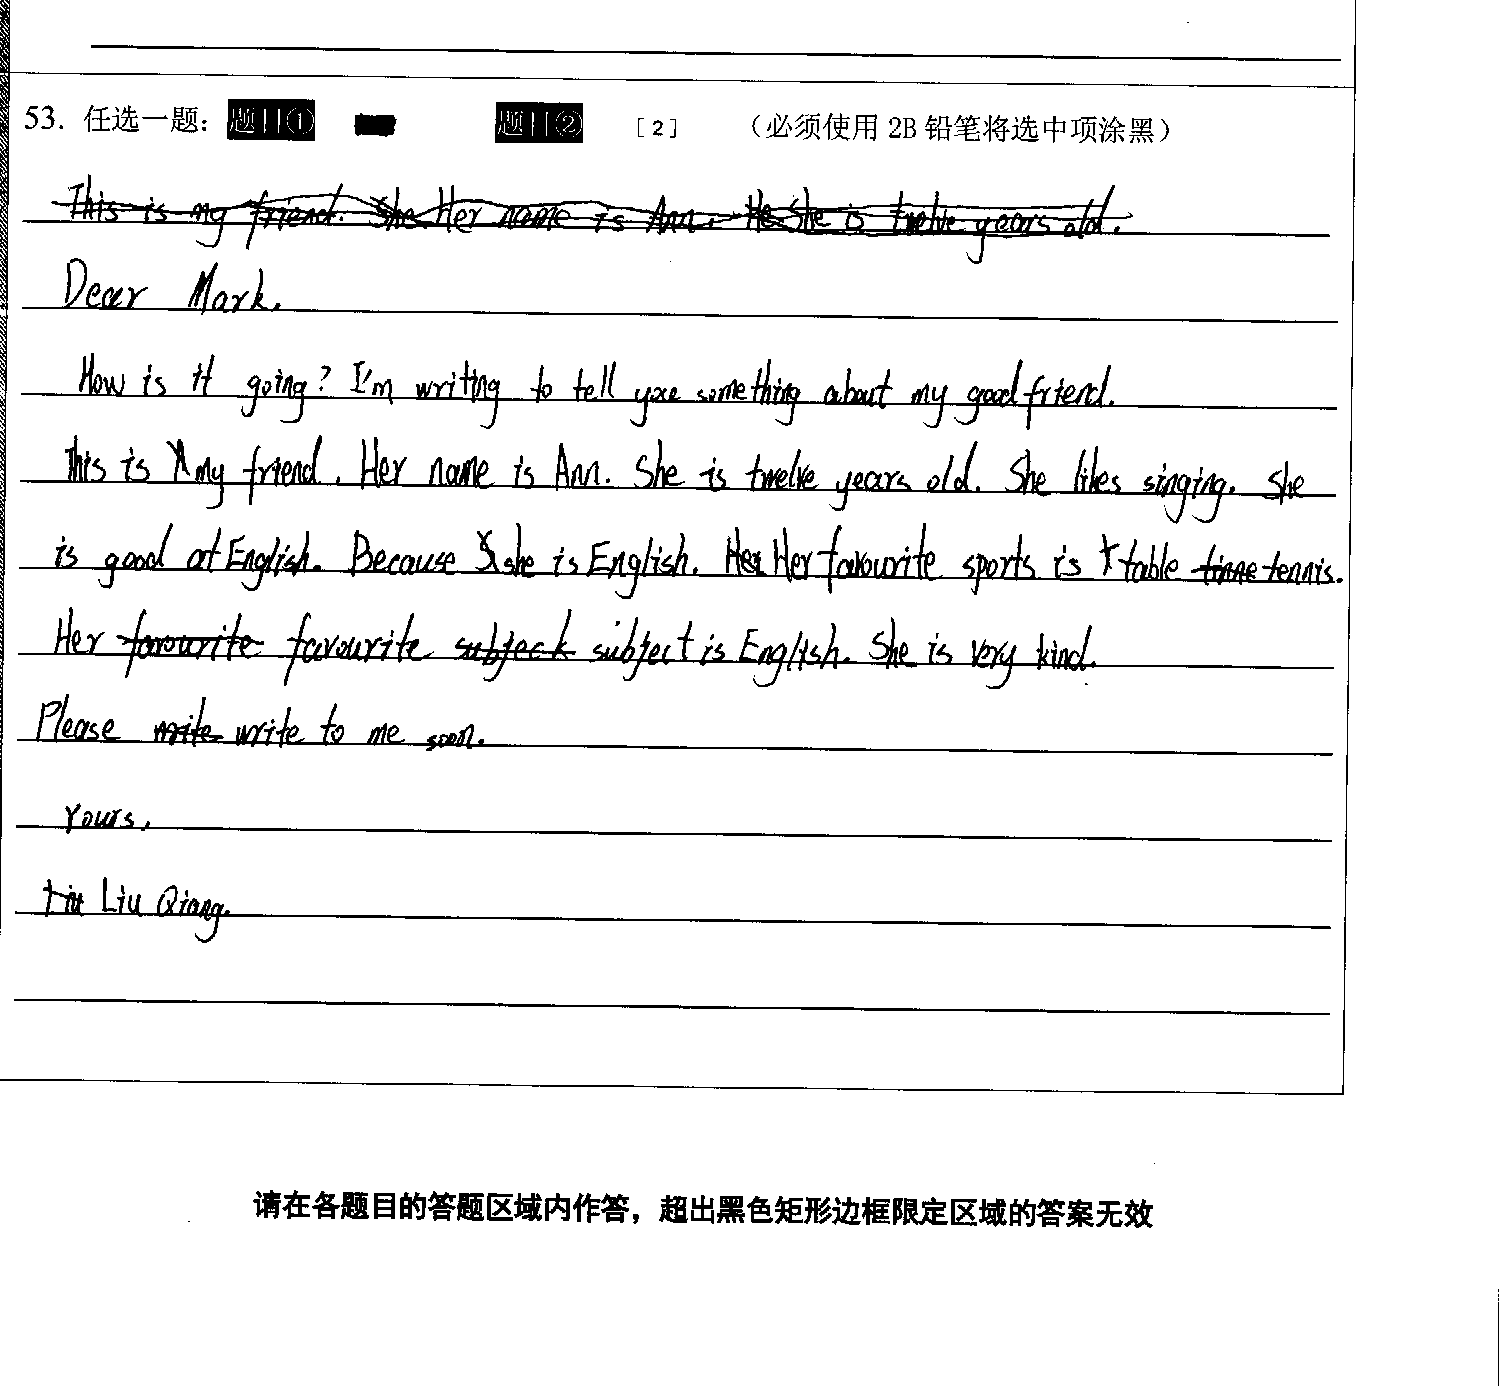 53. 任选一题： 题目① 题目② [2] （必须使用 2B 铅笔将选中项涂黑）
This is my friend. She Her name is Ann. He She is twelve years old.
Dear Mark.
How is it going? I'm writing to tell you something about my good friend.
This is my friend. Her name is Ann. She is twelve years old. She likes singing. She
is good at English. Because she is English. Her Her favourite sports is table tinne tennis.
Her favourite favourite subjeck subject is English. She is very kind.
Please write write to me soon.
Yours.
Liu Liu Qiang.
请在各题目的答题区域内作答，超出黑色矩形边框限定区域的答案无效